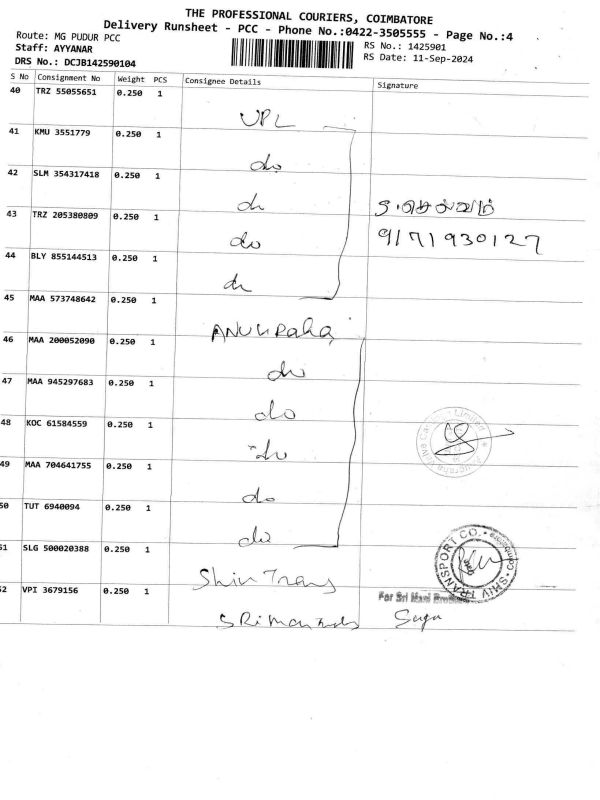 THE PROFESSIONAL COURIERS, COIMBATORE
Delivery Runsheet - PCC - Phone No.:0422-3505555 - Page No.:4
Route: MG PUDUR PCC
RS No.: 1425901
Staff: AYYANAR
RS Date: 11-Sep-2024
DRS No.: DCJB142590104
S No Consignment No Weight PCS Consignee Details Signature
40 TRZ 55055651 0.250 1 UPL
41 KMU 3551779 0.250 1 do
42 SLM 354317418 0.250 1 do
43 TRZ 205380809 0.250 1 do 9171930127
44 BLY 855144513 0.250 1 do
45 MAA 573748642 0.250 1 ANUGRaha
46 MAA 200052090 0.250 1 do
47 MAA 945297683 0.250 1 do
48 KOC 61584559 0.250 1 do
49 MAA 704641755 0.250 1 do
50 TUT 6940094 0.250 1 do
51 SLG 500020388 0.250 1 Shiv Trans
SHIV TRANSPORT CO. Coimbatore
52 VPI 3679156 0.250 1
For Sri Mani